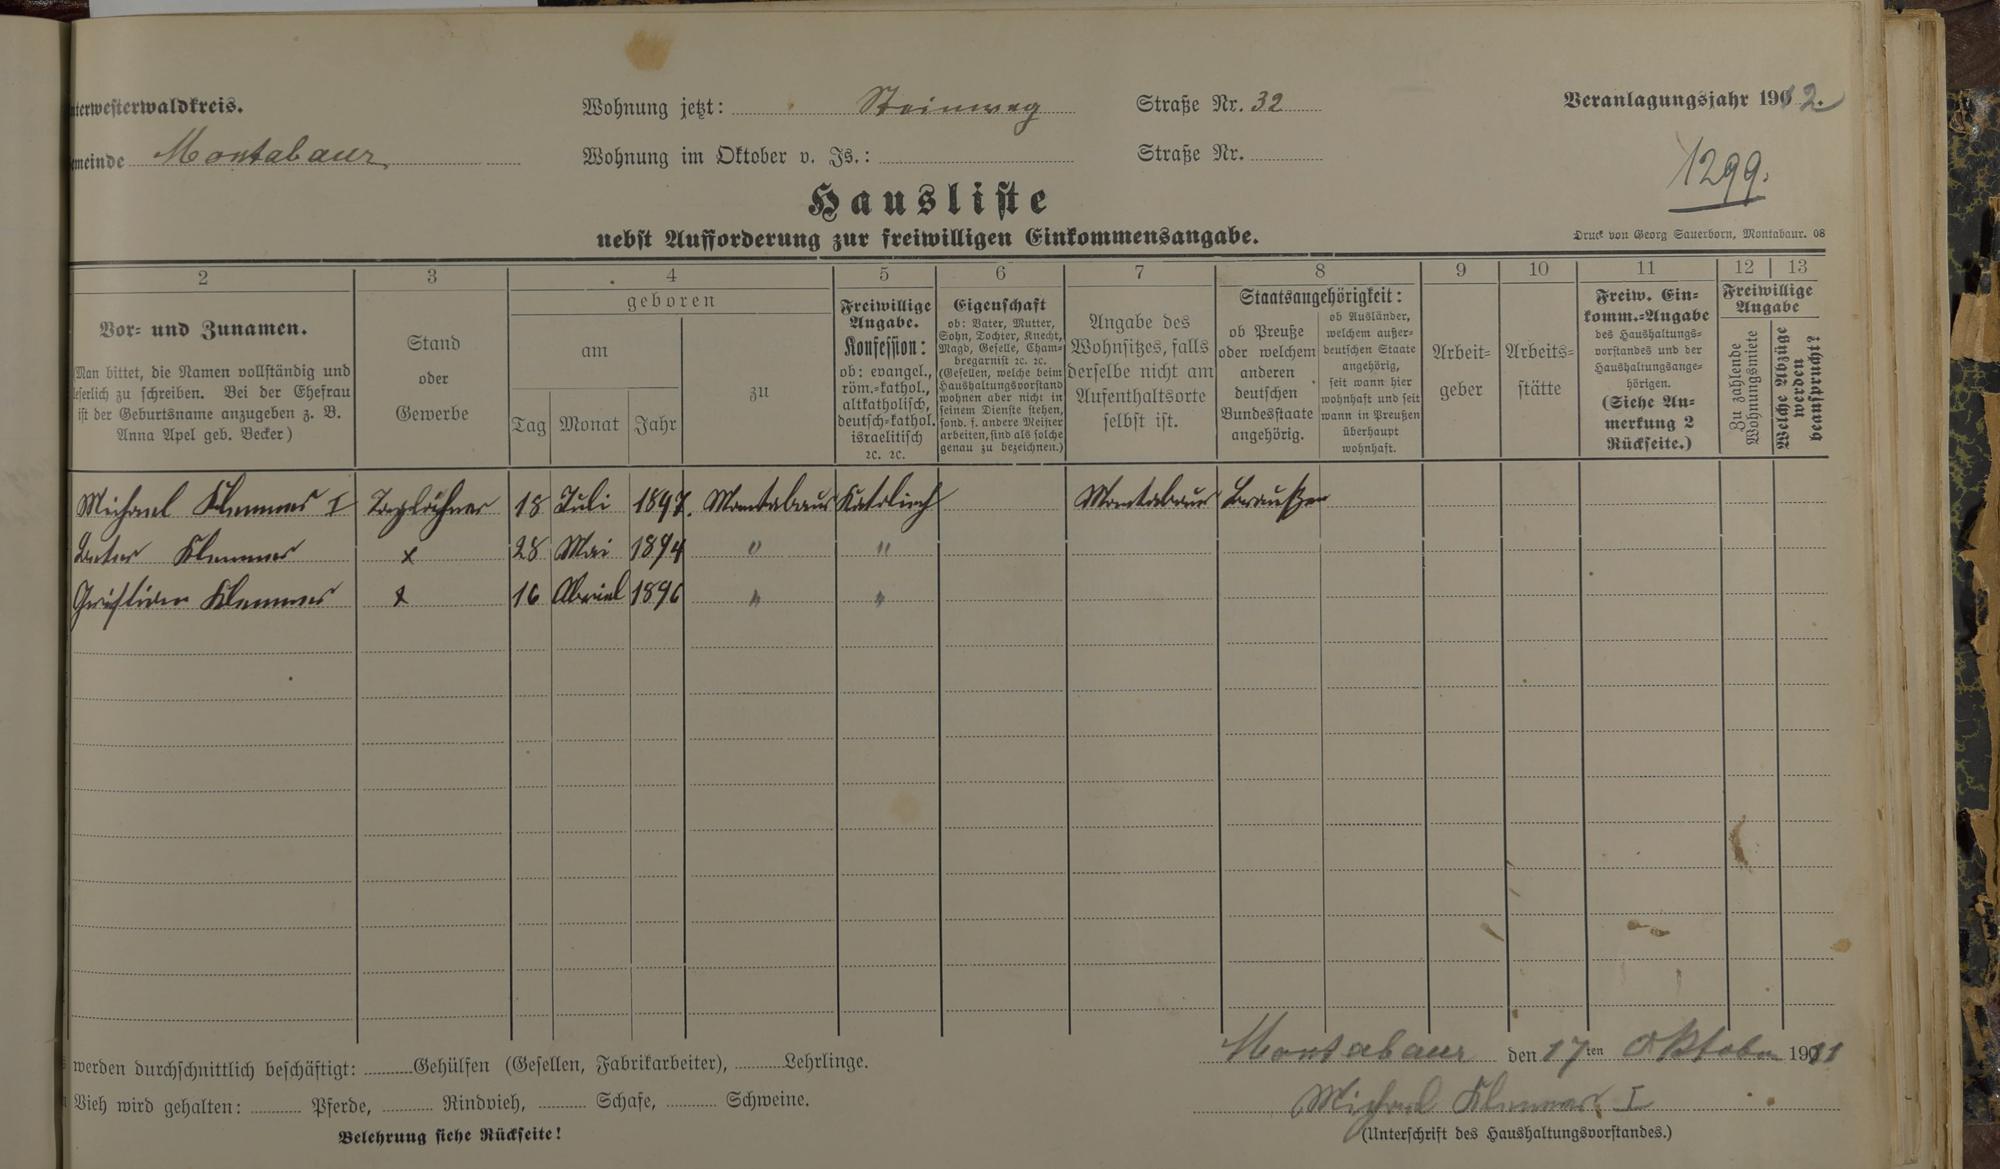 nterwesterwaldkreis.
Wohnung jetzt: Steinweg Straße Nr. 32
Veranlagungsjahr 1912.
emeinde Montabaur
Wohnung im Oktober v. Js.: Straße Nr.
1299.
Hausliste
nebst Aufforderung zur freiwilligen Einkommensangabe.
Druck von Georg Sauerborn, Montabaur. 08
2 3 4 5 6 7 8 9 10 11 12 13
Vor- und Zunamen.
(Man bittet, die Namen vollständig und
leserlich zu schreiben. Bei der Ehefrau
ist der Geburtsname anzugeben z. B.
Anna Apel geb. Becker)
Stand
oder
Gewerbe
geboren
am
Tag Monat Jahr
zu
Freiwillige
Angabe.
Konfession:
ob: evangel.,
röm.-kathol.,
altkatholisch,
deutsch-kathol.
israelitisch
ꝛc. ꝛc.
Eigenschaft
ob: Vater, Mutter,
Sohn, Tochter, Knecht,
Magd, Geselle, Cham-
bregarnist ꝛc. ꝛc.
(Gesellen, welche beim
Haushaltungsvorstand
wohnen aber nicht in
seinem Dienste stehen,
sond. f. andere Meister
arbeiten, sind als solche
genau zu bezeichnen.)
Angabe des
Wohnsitzes, falls
derselbe nicht am
Aufenthaltsorte
selbst ist.
Staatsangehörigkeit:
ob Preuße
oder welchem
anderen
deutschen
Bundesstaate
angehörig.
ob Ausländer,
welchem außer-
deutschen Staate
angehörig,
seit wann hier
wohnhaft und seit
wann in Preußen
überhaupt
wohnhaft.
Arbeit-
geber
Arbeits-
stätte
Freiw. Ein-
komm.-Angabe
des Haushaltungs-
vorstandes und der
Haushaltungsange-
hörigen.
(Siehe An-
merkung 2
Rückseite.)
Freiwillige
Angabe
Zu zahlende
Wohnungsmiete
Welche Abzüge
werden
beansprucht?
Michael Klemmer I Taglöhner 18 Juli 1897. Montabaur Katolisch Montabaur Preußen
Peter Klemmer x 28 Mai 1894 " "
Christian Klemmer x 16 Abriel 1896 " "
werden durchschnittlich beschäftigt: Gehülfen (Gesellen, Fabrikarbeiter), Lehrlinge.
Vieh wird gehalten: Pferde, Rindvieh, Schafe, Schweine.
Belehrung siehe Rückseite!
Montabaur den 17ten Oktober 1911
Michael Klemmer I
(Unterschrift des Haushaltungsvorstandes.)